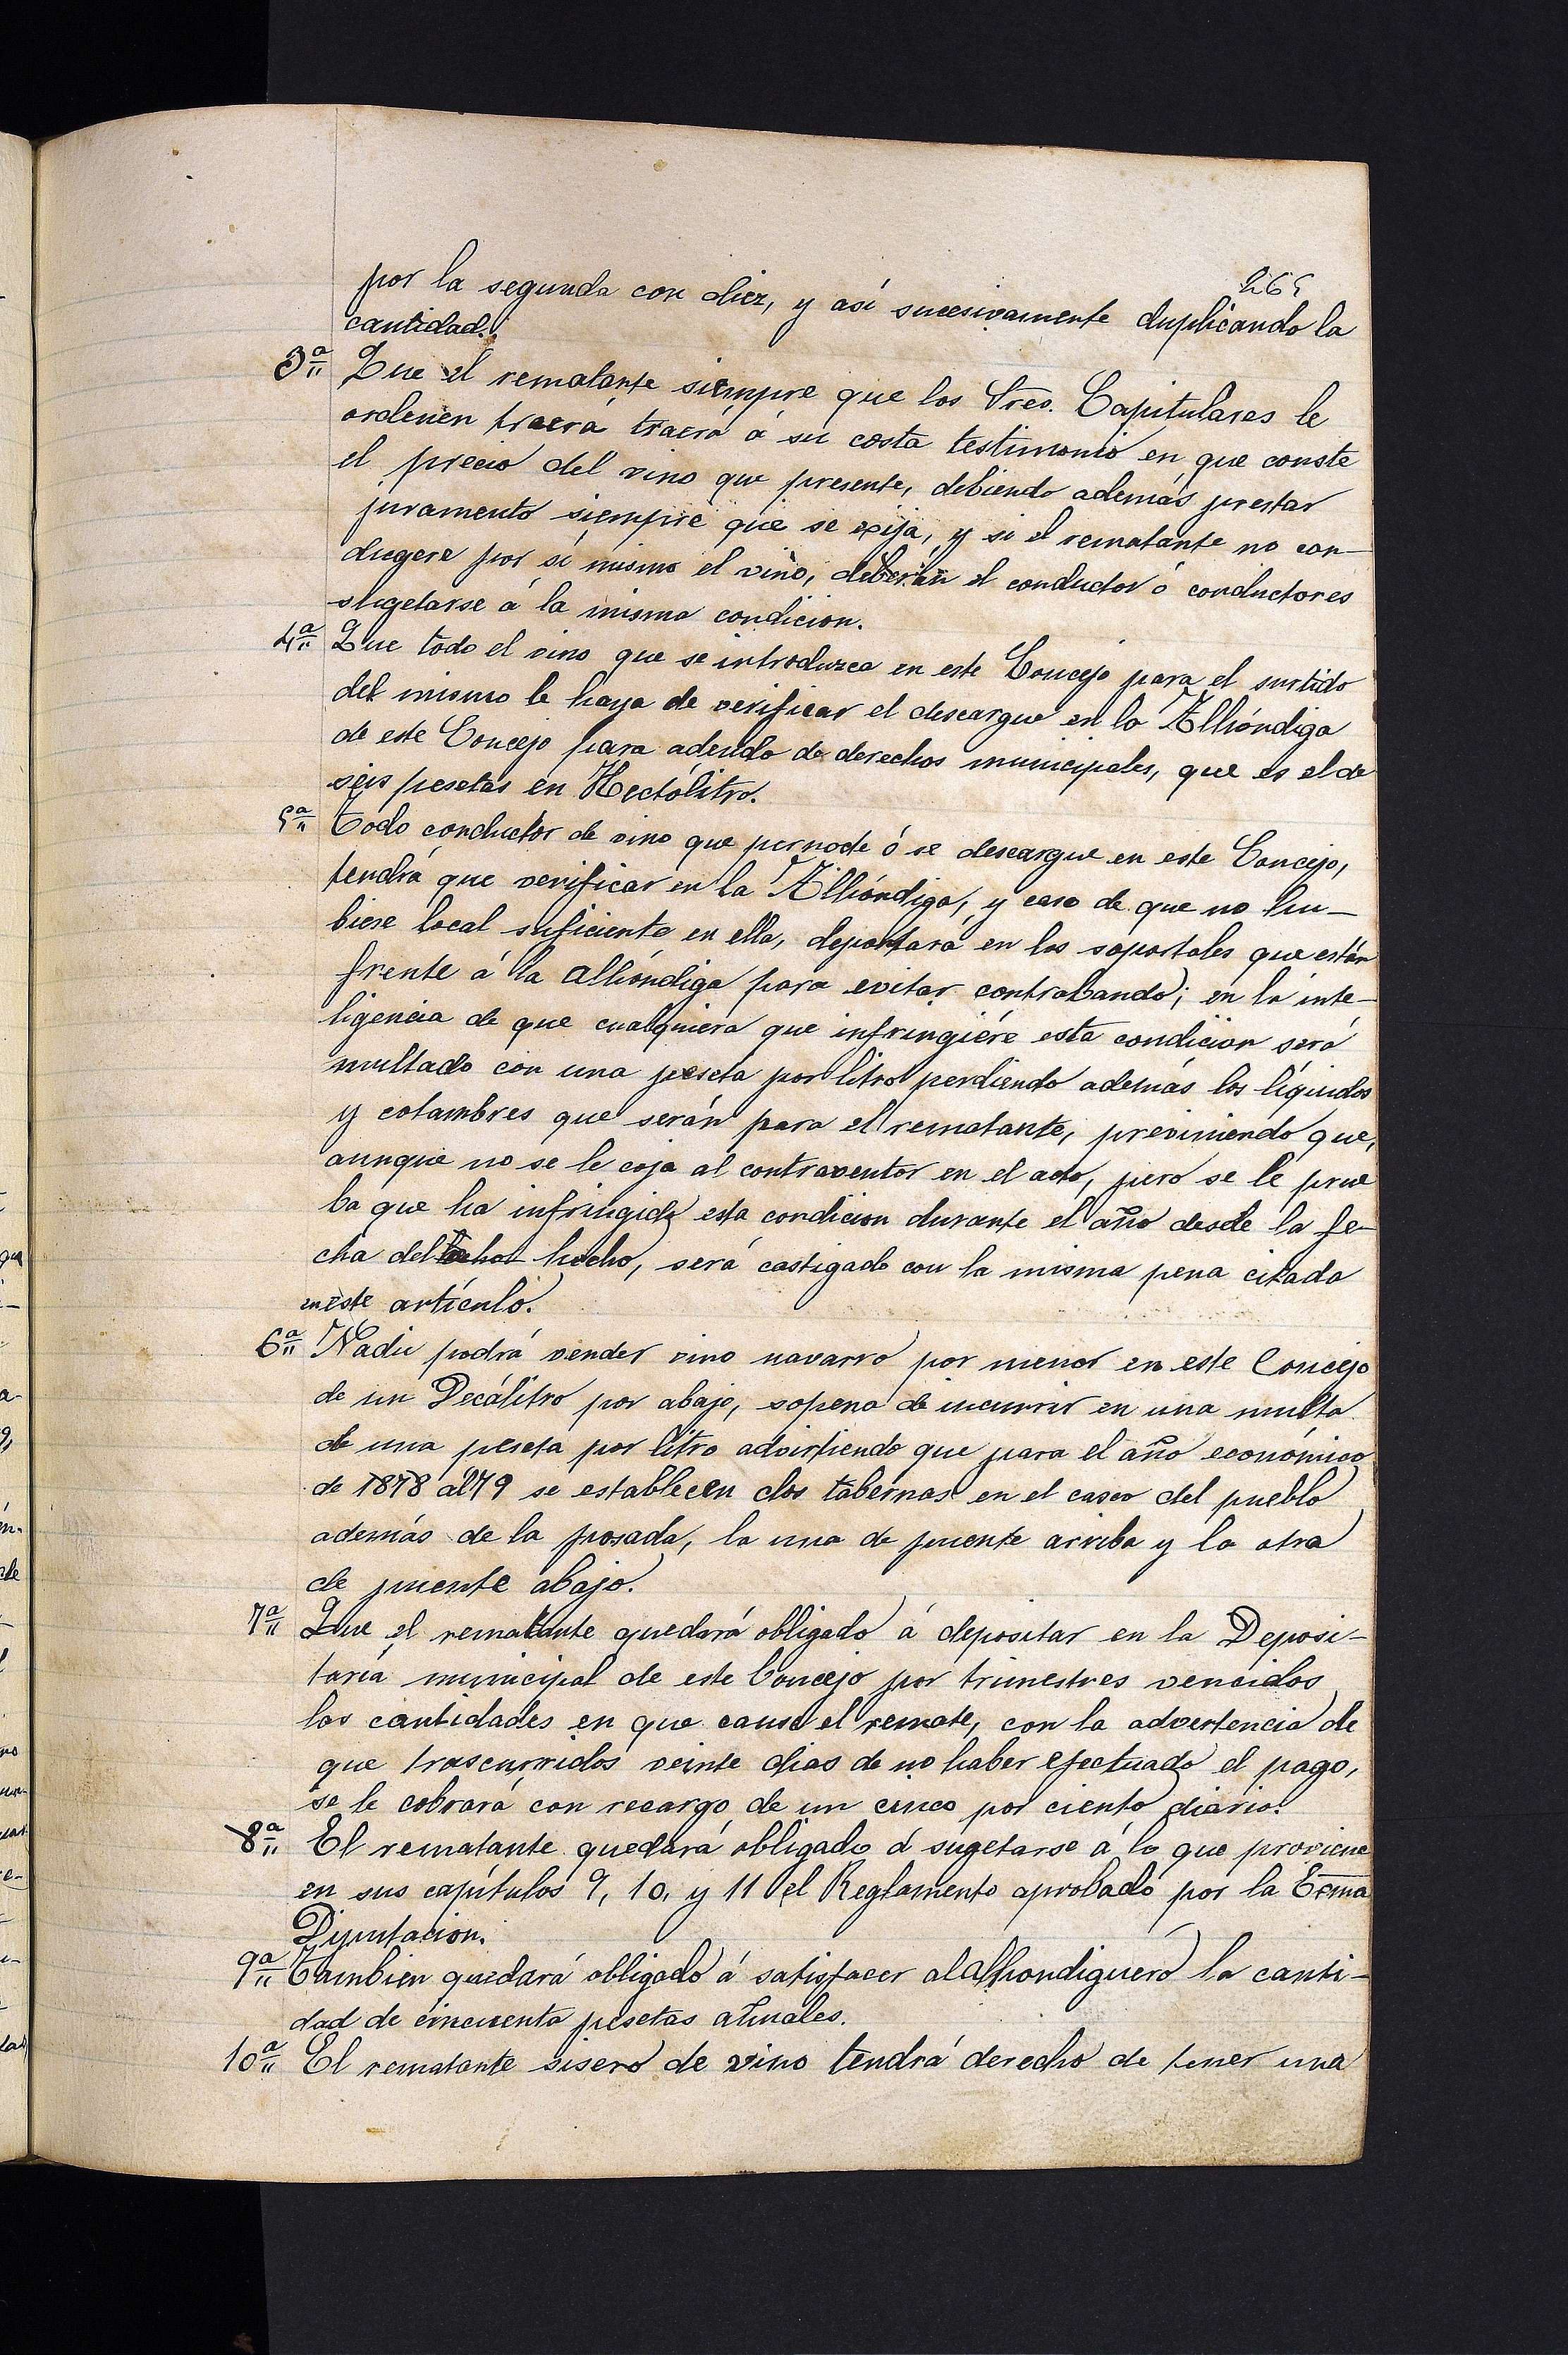 265
por la segunda con diez, y así sucesivamente duplicando la
cantidad.
3ª Que el rematante siempre que los Sres. Capitulares le
ordenen traerá traerá á su costa testimonio en que conste
el precio del vino que presente, debiendo además prestar
juramento siempre que se exija, y si el rematante no con-
dugere por sí mismo el vino, deberán el conductor ó conductores
sugetarse á la misma condicion.
4ª Que todo el vino que se introduzca en este Concejo para el surtido
del mismo le haya de verificar el descargue en la Alhóndiga
de este Concejo para adeudo de derechos municipales, que es el de
seis pesetas en Hectólitro.
5ª Todo conductor de vino que pernocte ó se descargue en este Concejo,
tendrá que verificar en la Alhóndiga, y caso de que no hu-
biese local suficiente en ella, deportará en los soportales que están
frente á la alhóndiga para evitar contrabando; en la inte-
ligencia de que cualquiera que infringiére esta condicion será
multado con una peseta por litro perdiendo además los líquidos
y colambres que serán para el rematante, previniendo que,
aunque no se le coja al contraventor en el acto, pero se le prue
ba que ha infringido esta condicion durante el año desde la fe-
cha del hecho, será castigado con la misma pena citada
en este artículo.
6ª Nadie podrá vender vino navarro por menor en este Concejo
de un Decálitro por abajo, sopena de incurrir en una multa
de una peseta por litro advirtiendo que para el año económico
de 1878 al 79 se establecen dos tabernas en el casco del pueblo
además de la posada, la una de puente arriba y la otra
de puente abajo.
7ª Que el rematante quedará obligado á depositar en la Deposi-
taría municipal de este Concejo por trimestres vencidos
las cantidades en que cause el remate, con la advertencia de
que trascurridos veinte dias de no haber efectuado el pago,
se le cobrará con recargo de un cinco por ciento diario.
8ª El rematante quedará obligado á sugetarse á lo que previene
en sus capítulos 9, 10, y 11 el Reglamento aprobado por la Exma
Diputacion.
9ª Tambien quedará obligado á satisfacer al alhondiguero la canti-
dad de cincuenta pesetas anuales.
10ª El rematante sisero de vino tendrá derecho de tener una